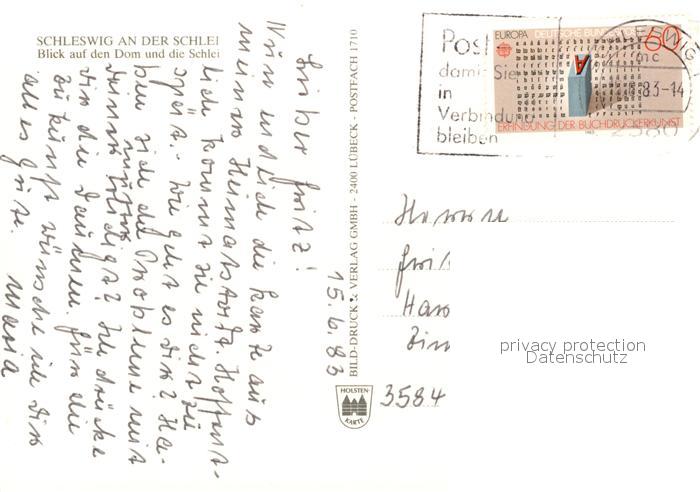 SCHLESWIG AN DER SCHLEI
Blick auf den Dom und die Schlei
15.6.83
Lieber Fritz!
Nun endlich die Karte aus
meinem Heimatorte. Hoffent-
lich kommt sie nicht zu
spät. Wie geht es Dir? Ha-
ben sich die Probleme mit
Deiner Mutter erledigt? Ich drücke
Dir die Daumen. Für die
Zukunft wünsche ich Dir
alles Gute. Maria
BILD-DRUCK & VERLAG GMBH - 2400 LÜBECK - POSTFACH 1710
HOLSTEN-
KARTE
Post -
damit Sie
in
Verbindung
bleiben
EUROPA DEUTSCHE BUN
60
A
ERFINDUNG DER BUCHDRUCKERKUNST
1983
83-14
2380
Herrn
Fri
Zim
3584
privacy protection
Datenschutz